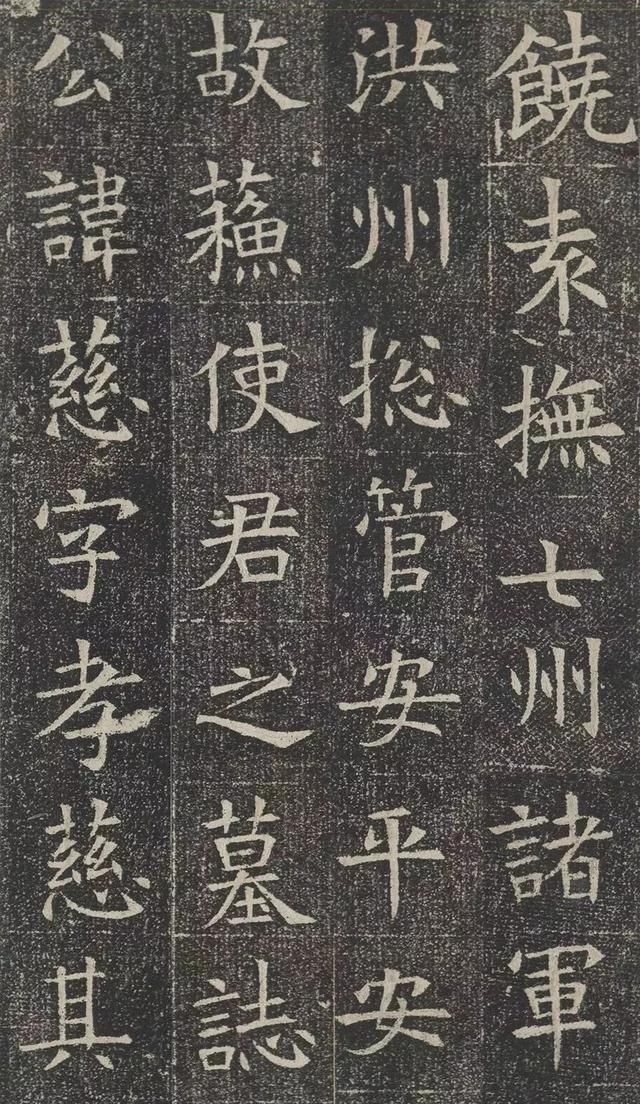 饒袁撫七州諸軍
洪州揔管安平安
故蘓使君之墓誌
公諱慈字孝慈其